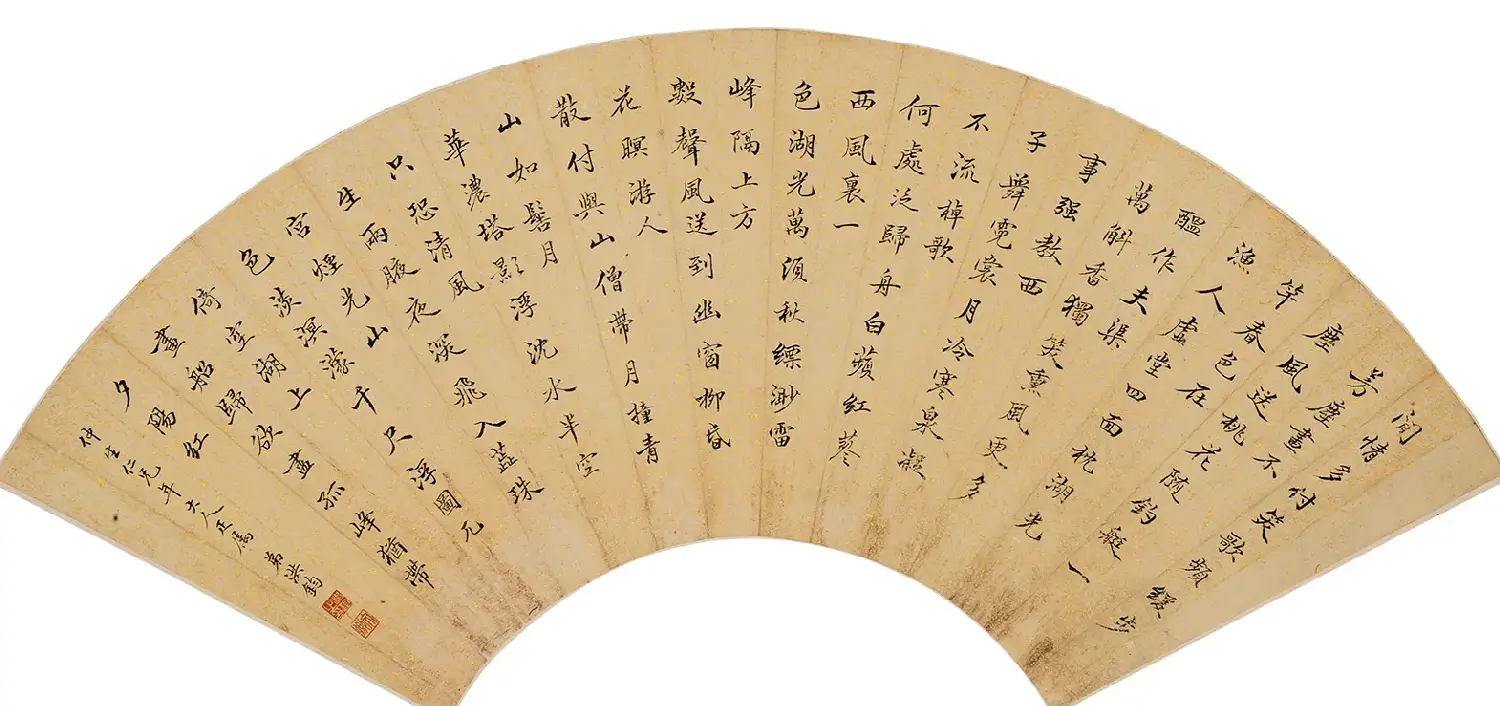 閒情多付笑歌頻緩步
芳塵畫不
塵風送桃花隨釣艇一
竿春色在
漁人虛堂四面枕湖光
醞作夫渠
萬斛香獨笑薰風更多
事强教西
子舞霓裳月冷寒泉凝
不流棹歌
何處泛歸舟白蘋紅蓼
西風裏一
色湖光萬頃秋縹渺雷
峰隔上方
數聲風送到幽窗柳昏
花暝游人
散付與山僧帶月撞青
山如髻月
華濃塔影浮沈水半空
只恐清風
生兩腋夜深飛入蕊珠
宮煙光山
色淡溟濛千尺浮圖兀
倚空湖上
畫船歸欲盡孤峰猶帶
夕陽紅
仲生仁兄年大人正屬 弟洪鈞